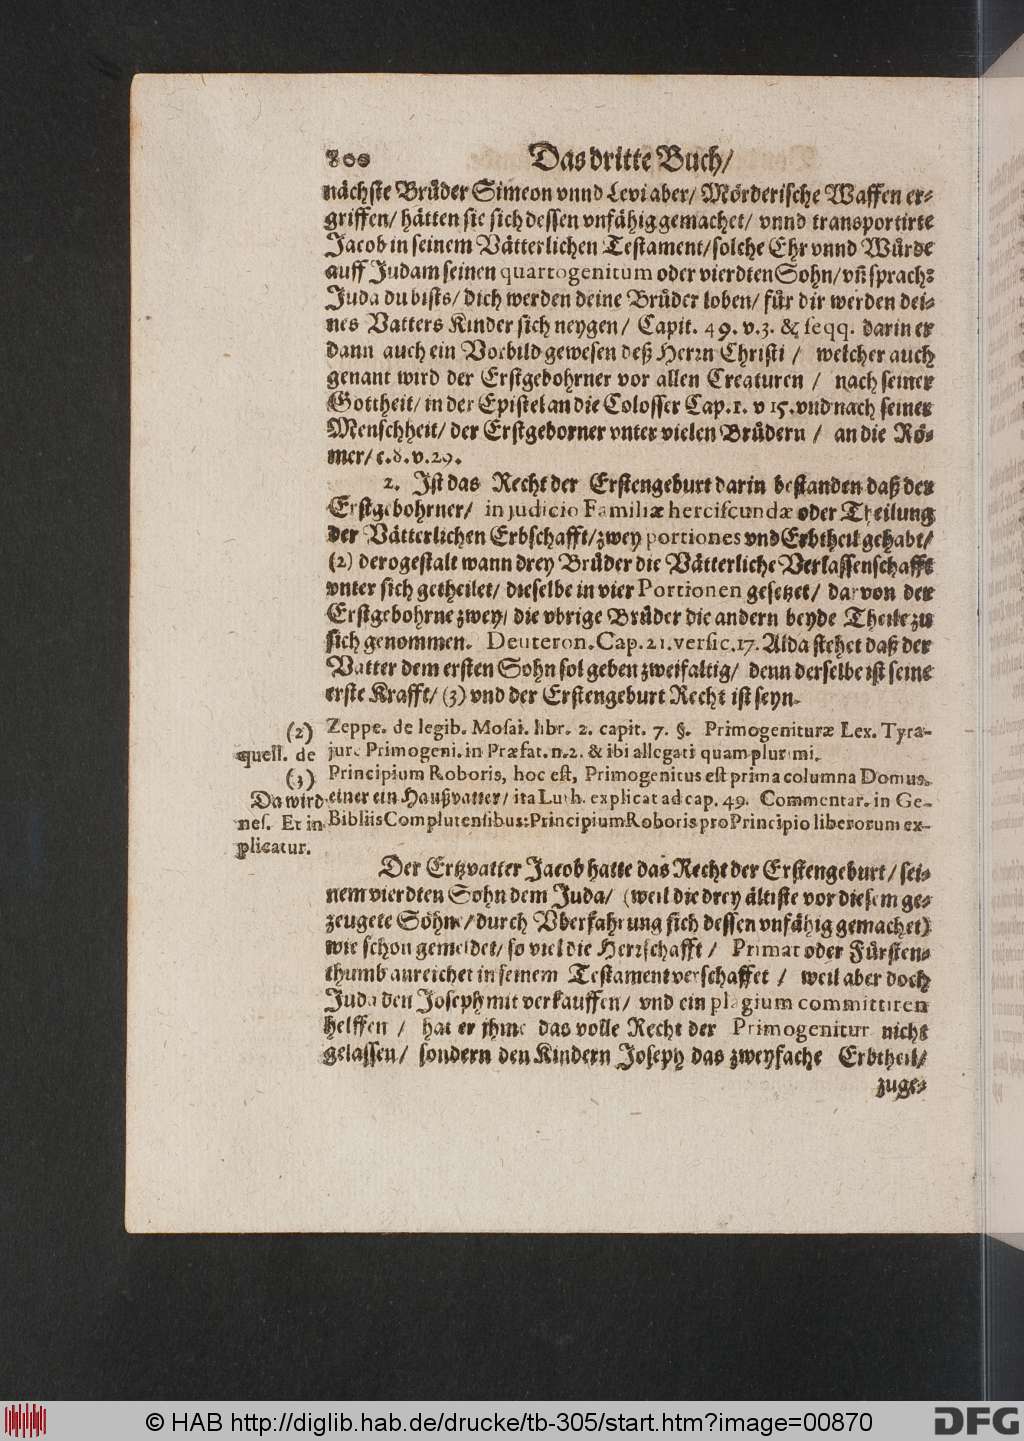 800 Das dritte Buch/
nächste Brüder Simeon vnnd Levi aber/ Mörderische Waffen er-
griffen/ hätten sie sich dessen vnfähig gemachet/ vnnd transportirte
Jacob in seinem Vätterlichen Testament/ solche Ehr vnnd Würde
auff Judam seinen quartogenitum oder vierdten Sohn/ vñ sprach:
Juda du bists/ dich werden deine Brüder loben/ für dir werden dei-
nes Vatters Kinder sich neygen/ Capit. 49. v.3. & seqq. darin er
dann auch ein Vorbild gewesen deß Herrn Christi / welcher auch
genant wird der Erstgebohrner vor allen Creaturen / nach seiner
Gottheit/ in der Epistel an die Colosser Cap.1. v 15. vnd nach seiner
Menschheit/ der Erstgeborner vnter vielen Brüdern / an die Rö-
mer/ c.8. v.29.
2. Ist das Recht der Erstengeburt darin bestanden daß der
Erstgebohrner/ in judicio Familiæ herciscundæ oder Theilung
der Vätterlichen Erbschafft/ zwey portiones vnd Erbtheil gehabt/
(2) derogestalt wann drey Brüder die Vätterliche Verlassenschafft
vnter sich getheilet/ dieselbe in vier Portionen gesetzet/ darvon der
Erstgebohrne zwey/ die vbrige Brüder die andern beyde Theile zu
sich genommen. Deuteron. Cap. 21. versic. 17. Alda stehet daß der
Vatter dem ersten Sohn sol geben zweifaltig/ denn derselbe ist seine
erste Krafft/ (3) vnd der Erstengeburt Recht ist seyn.
(2) Zeppe. de legib. Mosai. libr. 2. capit. 7. §. Primogenituræ Lex. Tyra-
quell. de jure Primogeni. in Præfat. n.2. & ibi allegati quam plurimi.
(3) Principium Roboris, hoc est, Primogenitus est prima columna Domus.
Da wird einer ein Haußvatter/ ita Luth. explicat ad cap. 49. Commentar. in Ge-
nes. Et in Bibliis Complutensibus: Principium Roboris pro Principio liberorum ex-
plicatur.
Der Ertzvatter Jacob hatte das Recht der Erstengeburt/ sei-
nem vierdten Sohn dem Juda/ (weil die drey ältiste vor diesem ge-
zeugete Söhne/ durch Vberfahrung sich dessen vnfähig gemachet)
wie schon gemeldet/ so viel die Herrschafft / Primat oder Fürsten-
thumb anreichet in seinem Testament verschaffet / weil aber doch
Juda den Joseph mit verkauffen/ vnd ein plagium committiren
helffen / hat er jhme das volle Recht der Primogenitur nicht
gelassen/ sondern den Kindern Joseph das zweyfache Erbtheil/
zuge-
© HAB http://diglib.hab.de/drucke/tb-305/start.htm?image=00870
DFG